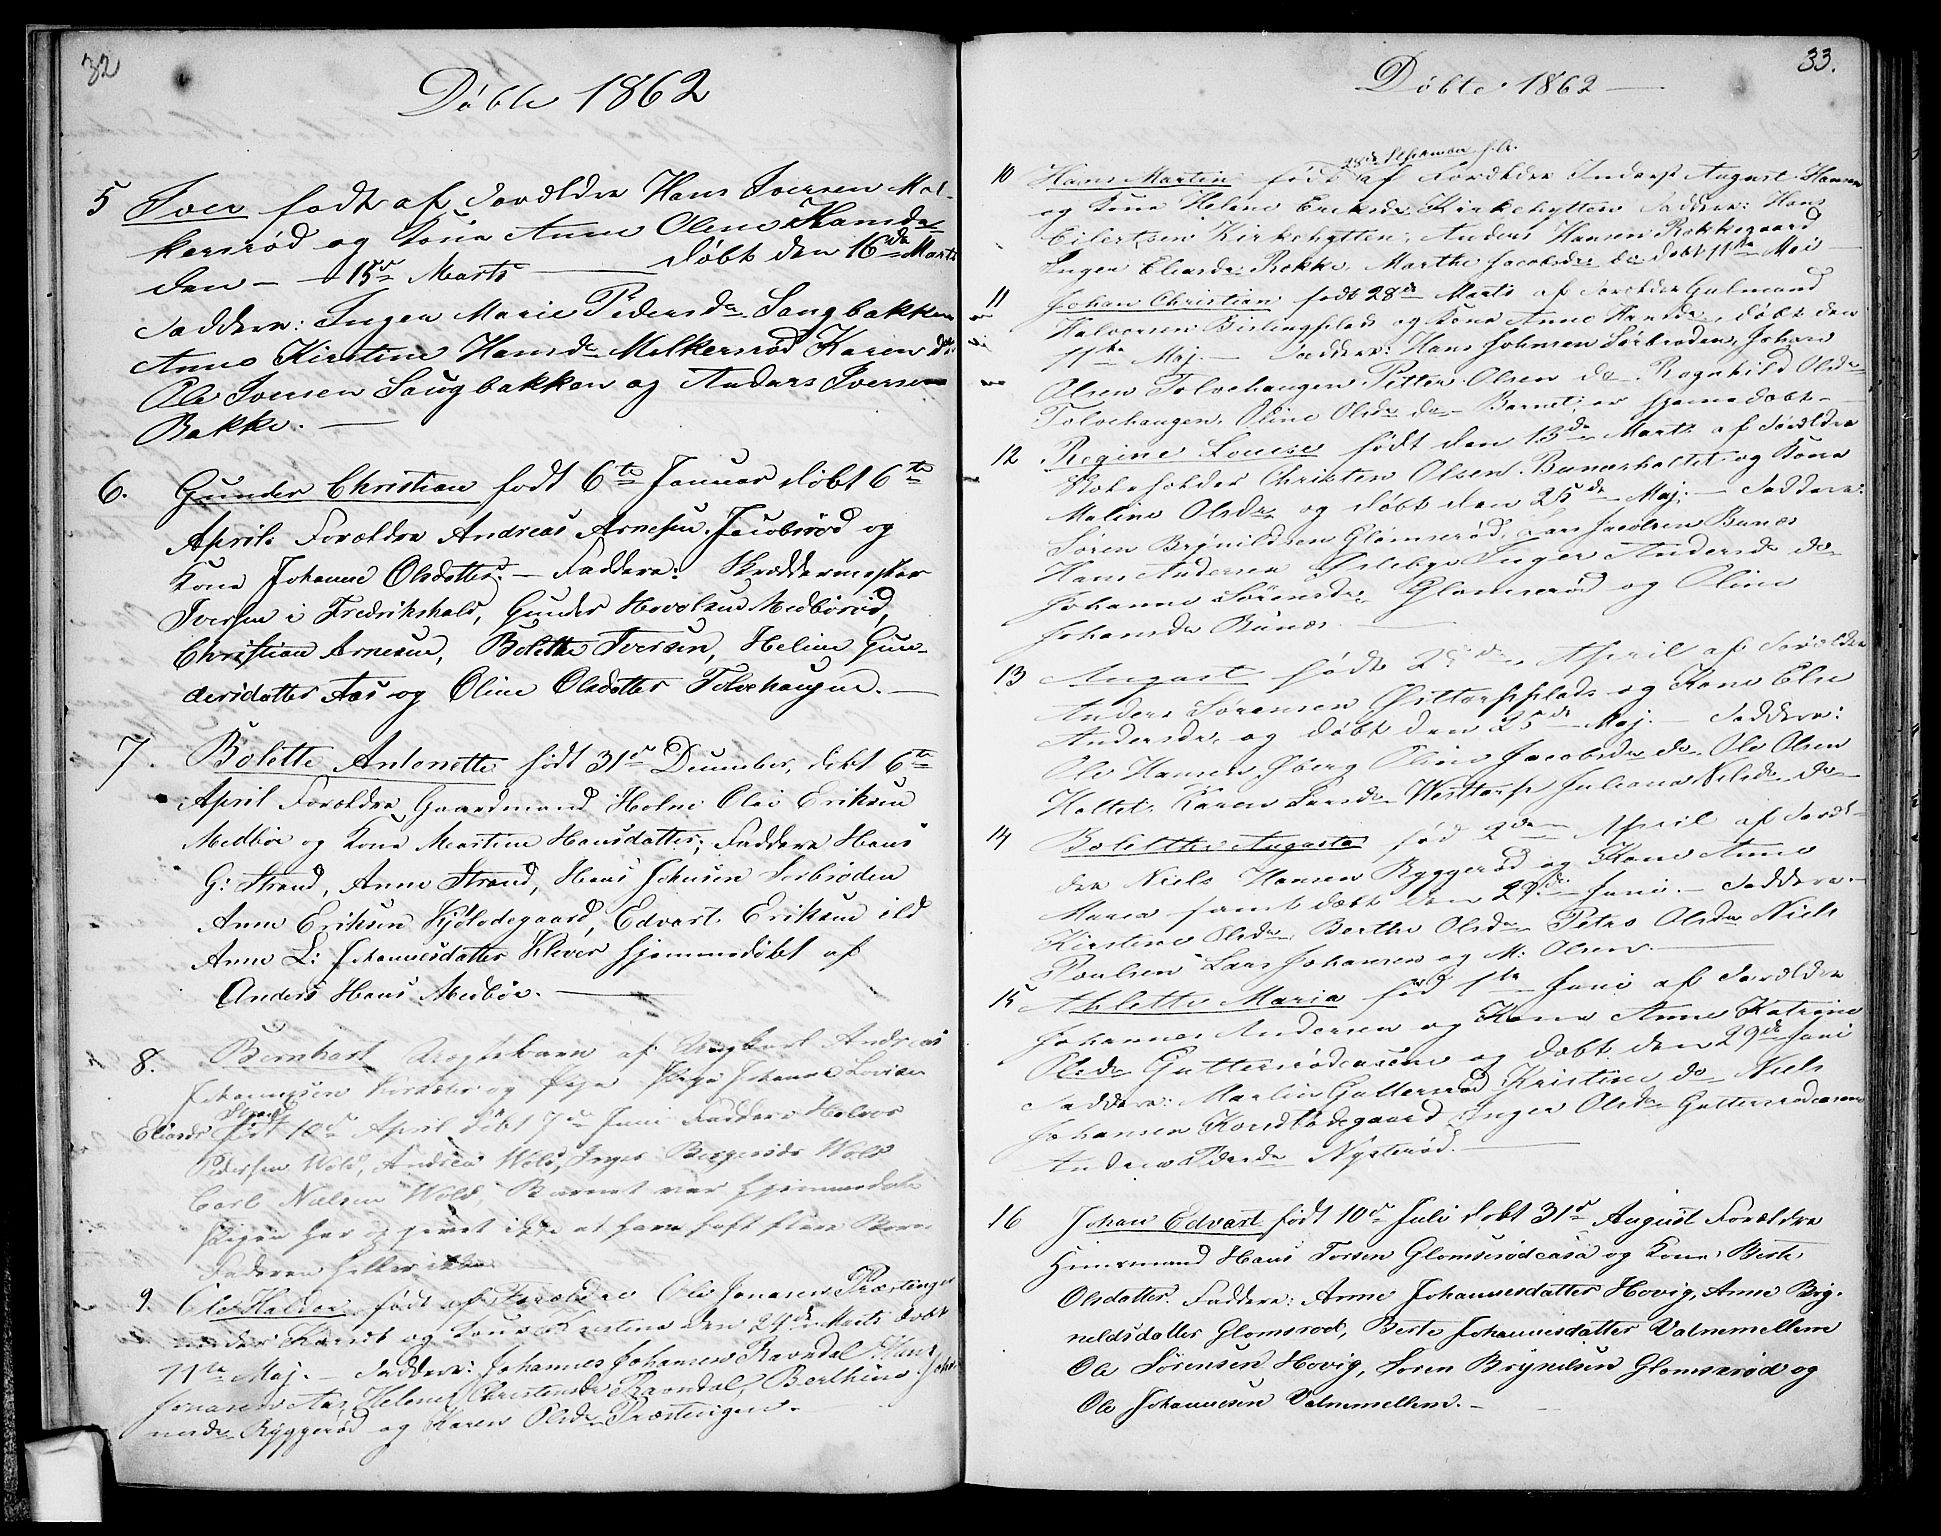 32
Döbte 1862
5 Iver født af Forældre Hans Iversen Mel-
kersrød og Kone Anne Oline Hansdr
den - 15de Marts døbt den 16de Marts
Faddere: Inger Marie Pedersdr Saugbakken
Anne Kirstine Hansdr Melkersrød Karen do:
Ole Iversen Saugbakken og Anders Iversen
Bakke. —
6. Gunder Christian født 6te Januar döbt 6te
April. Forældre Andreas Arnesen Jacobsrød og
Kone Johanne Olsdatter. — Faddere: Skræddermester
Iversen i Fredrikshald, Gunder Hovelsen Medbörød,
Christian Arnesen, Bolette Iversen, Heline Gun-
dersdatter Aas og Oline Olsdatter Tolvehaugen. —
7. Bolette Antonette født 31te December, döbt 6te
April Forældre Gaardmand Holm Olai Eriksen
Medbøe og Kone Martine Hansdatter; Faddere Hans
G: Strand, Anne Strand, Hans Johnsen Sorbrøden
Anne Eriksen Kjölodegaard, Edvart Eriksen ibd
Anne L: Johannesdatter Klever hjemmedöbt af
Anders Hans Medböe. —
8. Bernhart Uægtebarn af Ungkarl Andreas
Johannesen og Pige Johanne Lovise
Eliasdr Strand født 10de April döbt 7de Juni Faddere Halvor
Pedersen Wold, Andrea Wold, Inger Wold
Carl Nielsen Wold, Barnet var hjemmedöbt
Pigen har og ikke at have haft flere Börn
Faderen heller ikke
9. Ole Halvor født af Forældre Ole Jonasen Præstenge
under og Kone Kirstine den 24de Marts døbt
11te Maj. — Faddere: Johannes Johansen Ravndal, Hans
Jonasen Aas, Helene Christensdr Ravndal, Berthine Johan-
nesdr Ryggerød og Karen Olsdr Præstengen.
33.
Döbte 1862 —
28de
10 Hans Martin født af Forældre Inderst August Hansen
og Kone Helene Eriksdr Kirkehytten Faddere: Hans
Eilertsen Kirkehytten, Anders Hansen Rokkegaard
Inger Eliasdr Rokke, Marthe Jacobsdr do døbt 11te Mai
11 Johan Christian født 28de Marts af Forældre Gulmand
Halvorsen og Kone Anne Hansdr, døbt den
11te Maj. — Faddere: Hans Johnsen Sörbröden, Johan
Olsen Tolvehaugen Petter Olsen do Ragnhild Olsdr
Tolvehaugen, Oline Olsdr do — Barnet er hjemmedøbt —
12 Regine Louise født den 13de Marts af Forældre
Christen Olsen Bunæsholtet og Kone
Maline Olsdr og døbt den 25de Maj. — Faddere:
Søren Brynildsen Glomserød, Lars Jacobsen Bunæs
Hans Andersen Inger Andersdr do
Johanne Sörensdr Glomserød og Oline
Johansdr Bunæs. —
13 August født 25de April af Forældre
Anders Sørensen og Kone Else
Andersdr, og døbt den 25de Maj. — Faddere:
Ole Hansen Oline Jacobsdr do Ole Olsen
Holtet, Karen Larsdr Westtorp Juliane Nilsdr do
14 Bolette Augusta fød 2den April af Foræl-
dre Niels Hansen Ryggerød og Kone Anne
Maria samt døbt den 29de Juni. — Faddere —
Kirstine Olsdr Berthe Olsdr Petra Olsdr Niels
Poulsen Lars Johansen og M: Olsen —
15 Maria fød 1te Juni af Forældre
Johannes Andersen og Kone Anne Katrine
Olsdr Gutterrødaasen og døbt den 29de Juni
Faddere: Martin Gutterrød Kristine do Niels
Johansen Inger Olsdr Gutterrødaasen
Andrea Pedersdr Nysterød. —
16 Johan Edvart født 10de Juli döbt 31te August Forældre
Huusmand Hans Torsen Glomserødaasa og Kone Berte
Olsdatter. Faddere: Anne Johannesdatter Hovig, Anne Bry-
neldsdatter Glomsrod, Berte Johannesdatter Valnemellem
Ole Sörensen Hovig, Soren Bryneldsen Glomserød og
Ole Johannesen Valnemellem. —